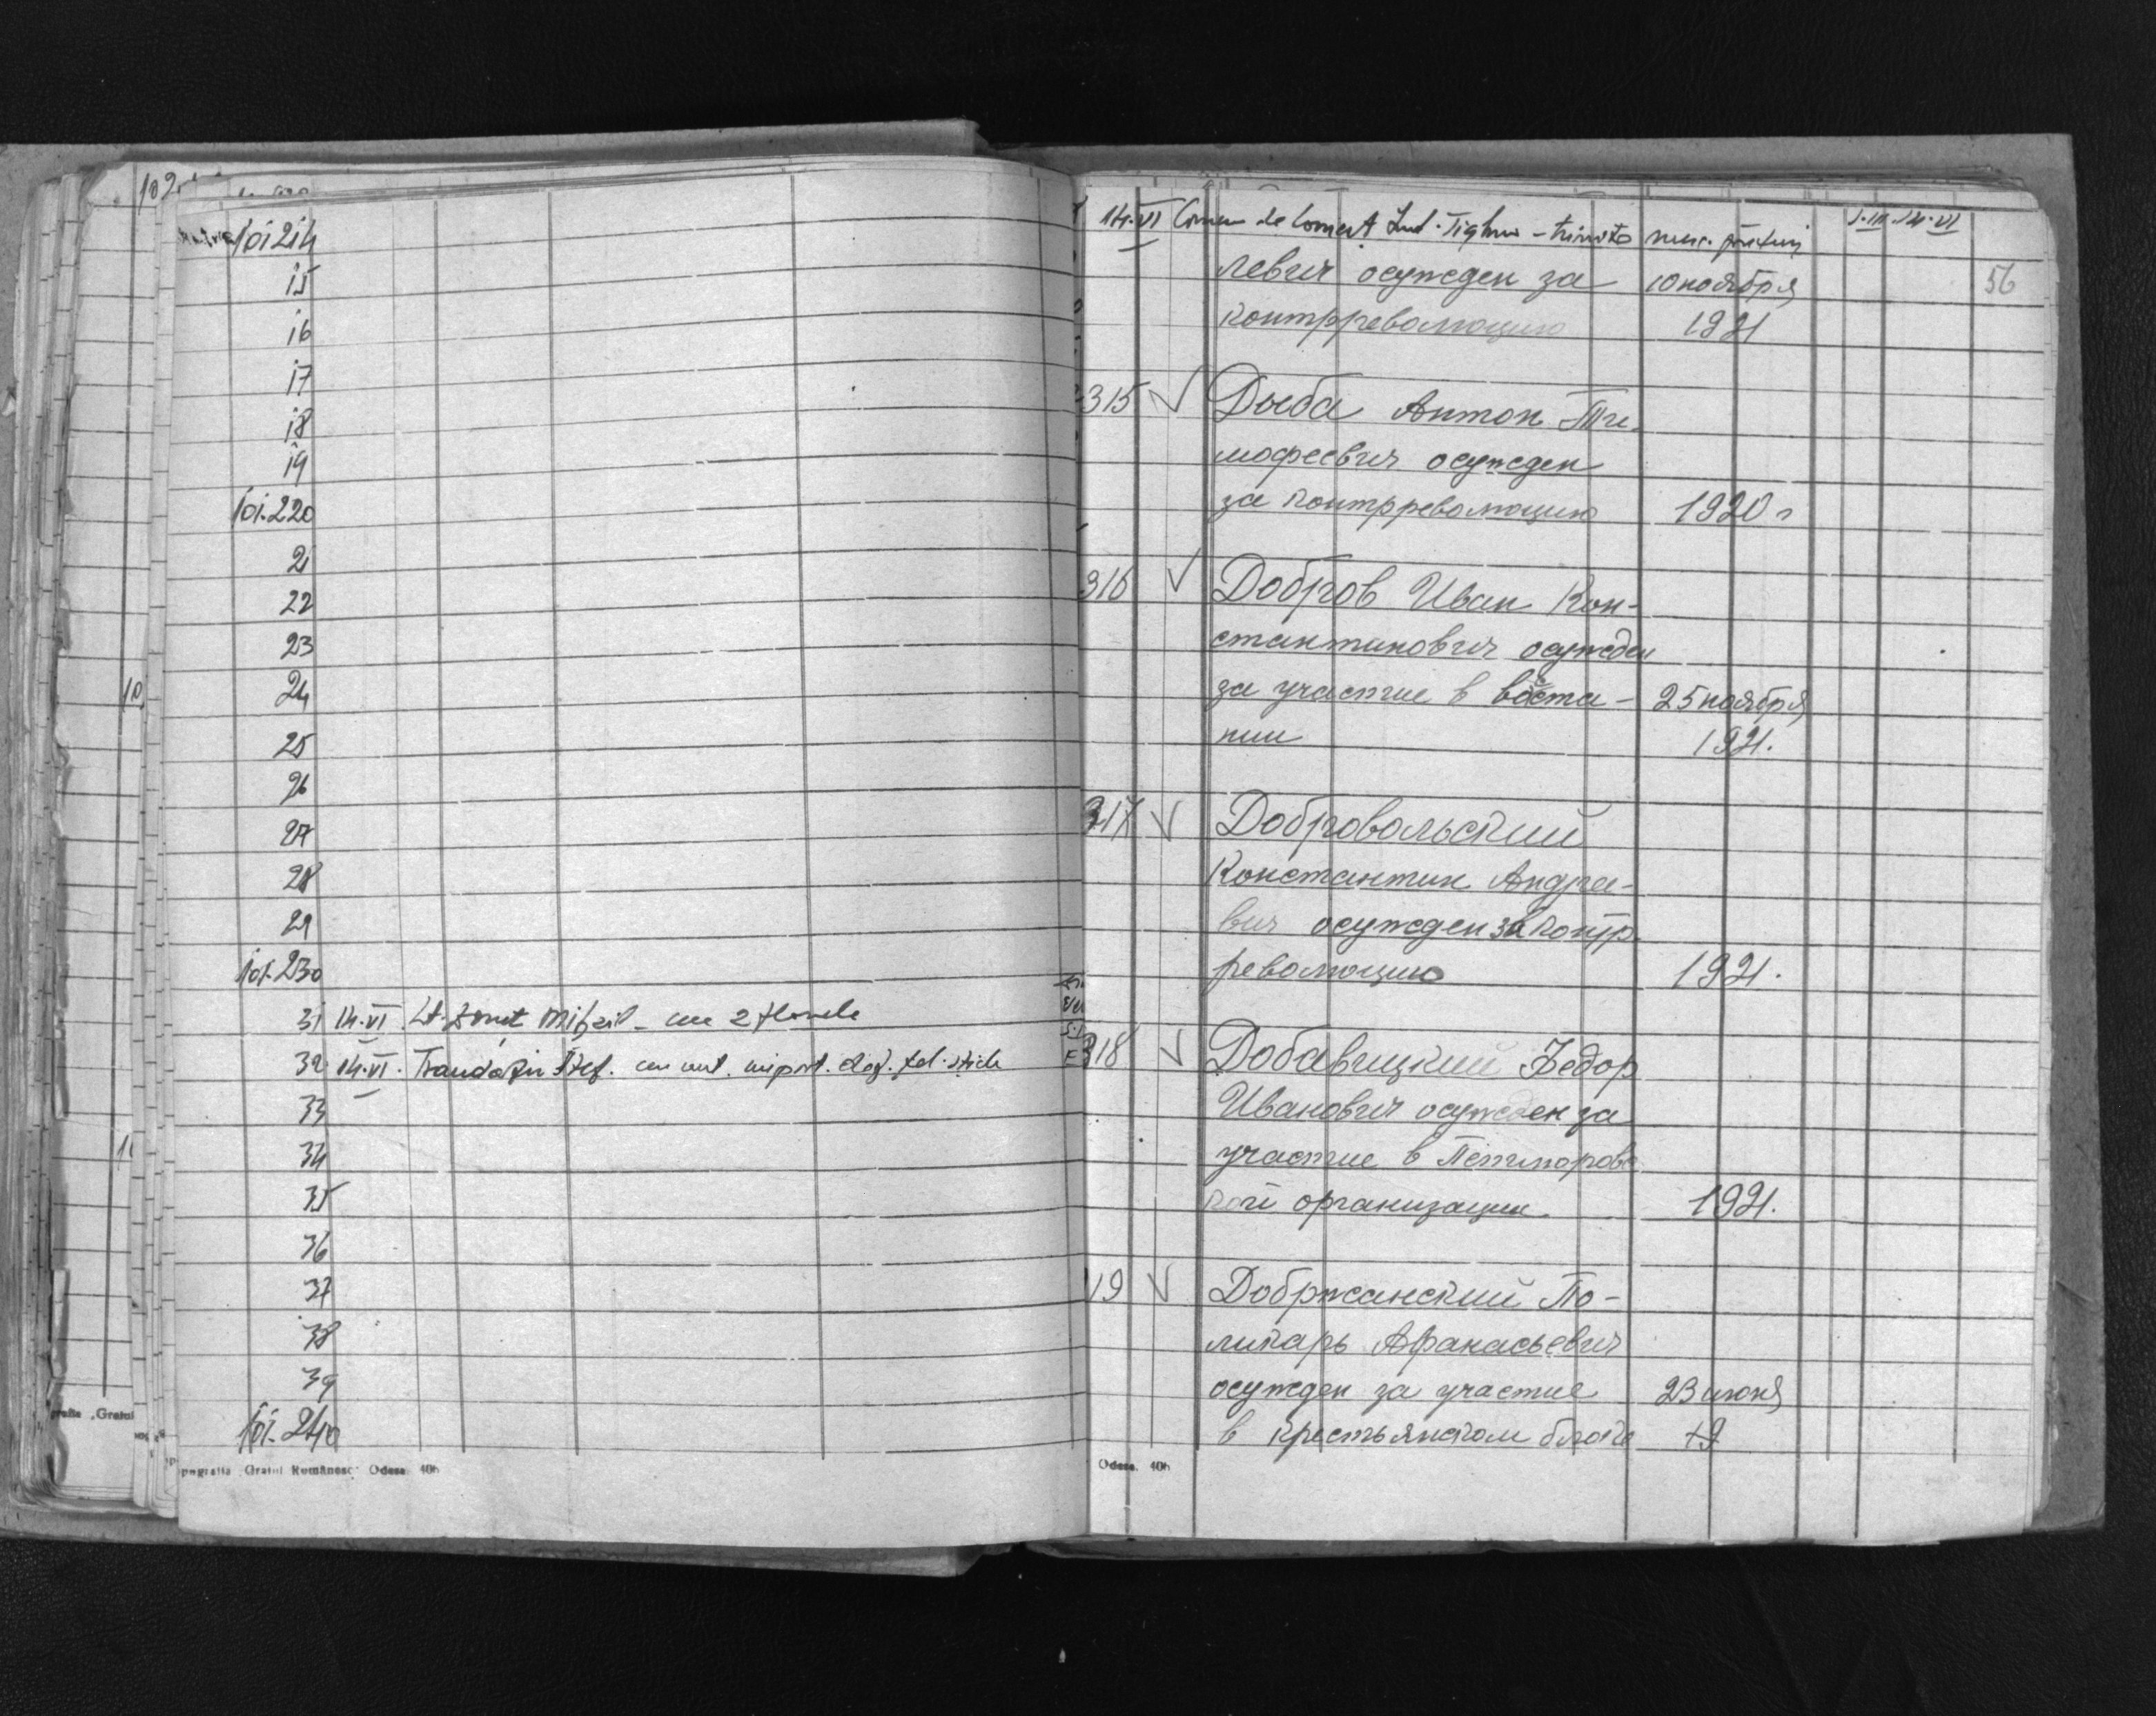 101214
15
16
17
18
19
101.220
21
22
23
24
25
26
27
28
29
101.230
31 14.VI. Lt.
cu 2
32 14.VI.
33
34
35
36
37
38
39
101.240
Tipografia „Gratul Românesc" Odesa. 406
14.VI de Comert Jud. Tighina - trimite
56
левич осужден за 10 ноября
контрреволюцию 1921
315 √ Дыба Антон Ти-
мофеевич осужден
за контрреволюцию 1920 г
316 √ Добров Иван Кон-
стантинович осужден
за участие в воста- 25 ноября
нии 1921.
317 √ Добровольский
Константин Андрее-
вич осужден за контр
революцию 1921.
318 √ Добавицкий Федор
Иванович осужден за
участие в Петлюровс
кой организации 1921.
19 √ Добржанский По-
ликарь Афанасьевич
осужден за участие 23 июня
в крестьянском блоке 19
Odesa. 406